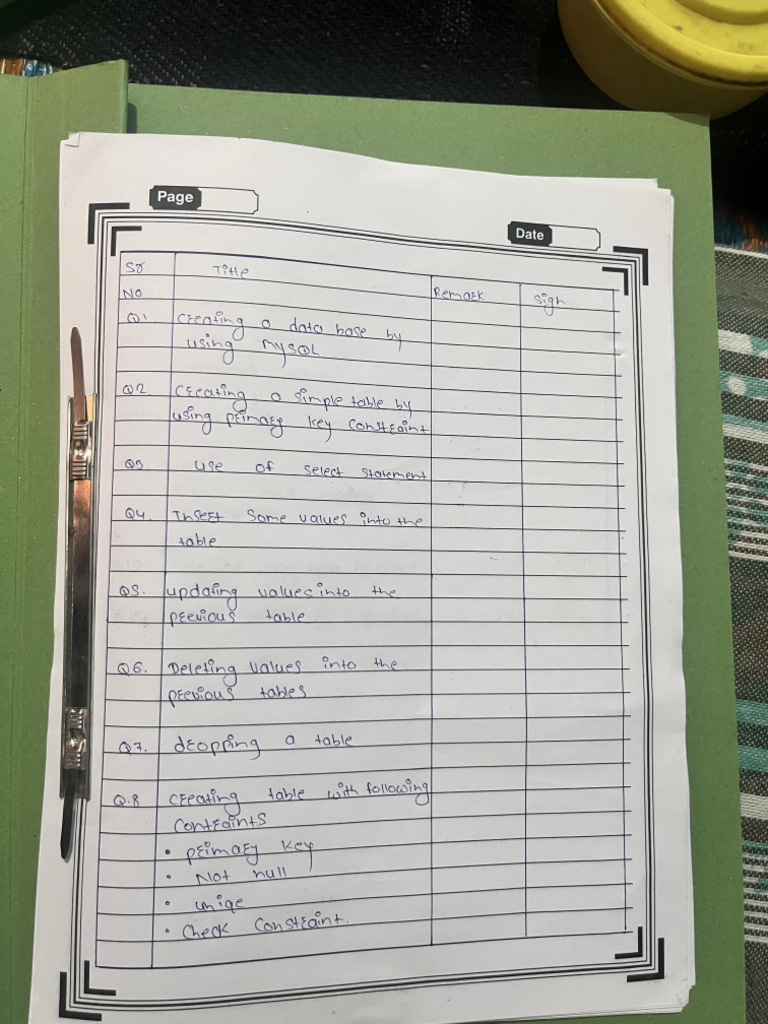 Page
Date
Sr Title
No Remark Sign
Q1 Creating a data base by
using MySQL
Q2. Creating a simple table by
using primary key constraint
Q3 use of select statement
Q4. Insert some values into the
table
Q5. updating values into the
previous table
Q6. Deleting values into the
previous tables
Q7. dropping a table
Q.8 Creating table with following
contraints
• primary key
• Not null
• uniqe
• Check Constraint.